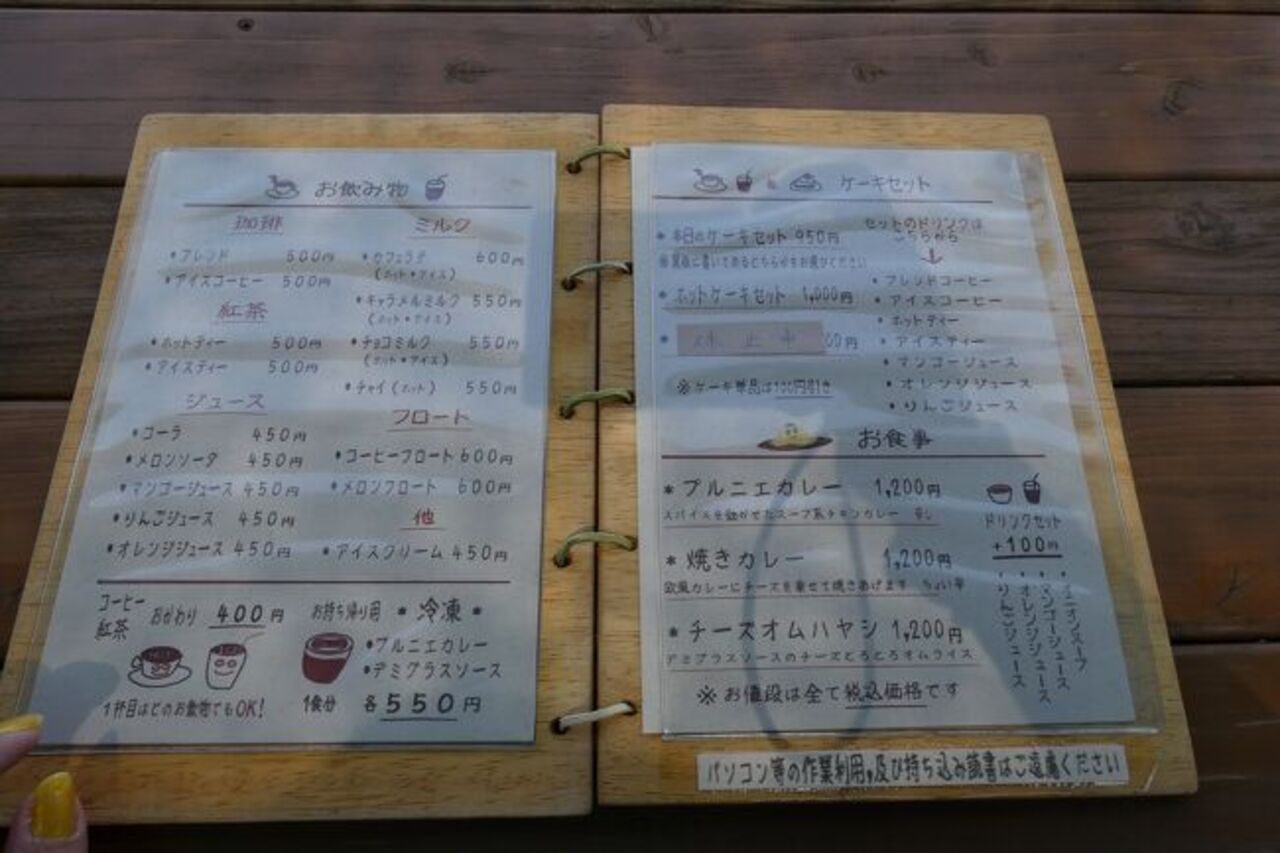 お飲み物
珈琲
・ブレンド 500円
・アイスコーヒー 500円
紅茶
・ホットティー 500円
・アイスティー 500円
ジュース
・コーラ 450円
・メロンソーダ 450円
・マンゴージュース 450円
・りんごジュース 450円
・オレンジジュース 450円
ミルク
・カフェラテ 600円
(ホット・アイス)
・キャラメルミルク 550円
(ホット・アイス)
・チョコミルク 550円
(ホット・アイス)
・チャイ(ホット) 550円
フロート
・コーヒーフロート 600円
・メロンフロート 600円
他
・アイスクリーム 450円
コーヒー
紅茶 おかわり 400円
1杯目はどのお飲物でもOK!
お持ち帰り用 *冷凍*
・プルニエカレー
・デミグラスソース
1食分 各550円
& ケーキセット
* 本日のケーキセット 950円
※裏板に書いてあるどちらかをお選びください
* ホットケーキセット 1,000円
* 休止中 00円
※ケーキ単品は100円引き
セットのドリンクは
こちらから
↓
・ブレンドコーヒー
・アイスコーヒー
・ホットティー
・アイスティー
・マンゴージュース
・オレンジジュース
・りんごジュース
お食事
* プルニエカレー 1,200円
スパイスを効かせたスープ系チキンカレー 辛し
* 焼きカレー 1,200円
欧風カレーにチーズを乗せて焼きあげます ちょい辛
* チーズオムハヤシ 1,200円
デミグラスソースのチーズとろとろオムライス
※お値段は全て税込価格です
ドリンクセット
+100円
・オニオンスープ
・マンゴージュース
・オレンジジュース
・りんごジュース
パソコン等の作業利用,及び持ち込み読書はご遠慮ください